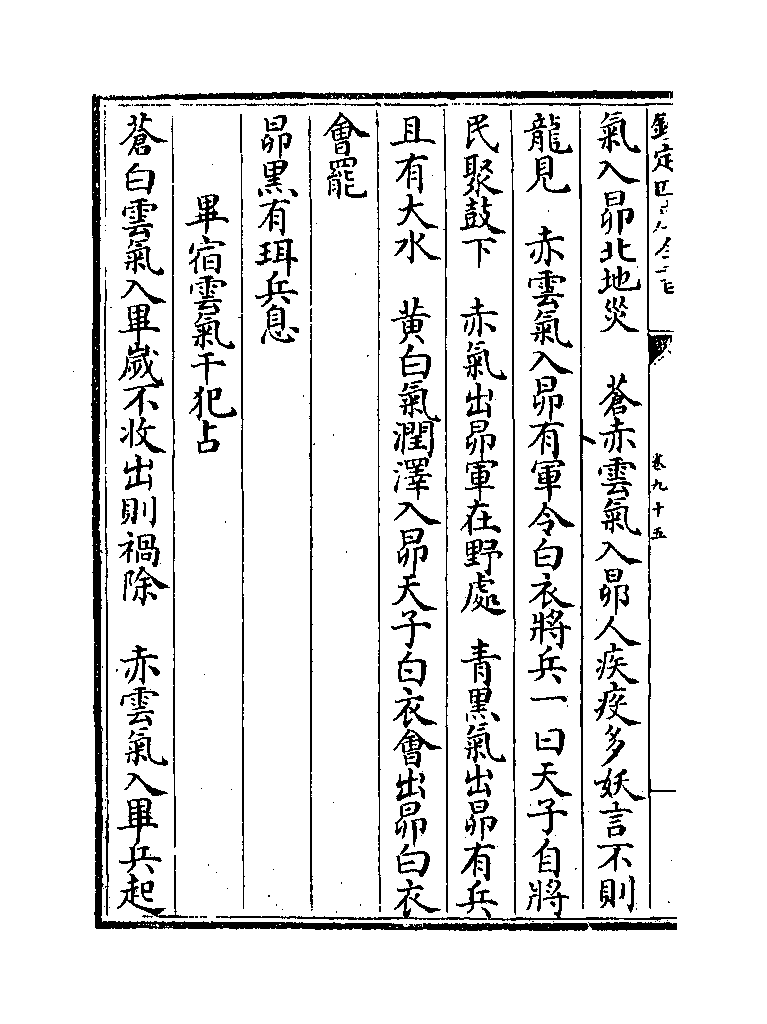 欽定四庫全書
卷九十五
氣入昴北地災　蒼赤雲氣入昴人疾疫多妖言不則
龍見　赤雲氣入昴有軍令白衣將兵一曰天子自將
民聚鼓下　赤氣出昴軍在野處　青黑氣出昴有兵
且有大水　黃白氣潤澤入昴天子白衣會出昴白衣
會罷
昴黒有珥兵息
畢宿雲氣干犯占
蒼白雲氣入畢嵗不收出則禍除　赤雲氣入畢兵起